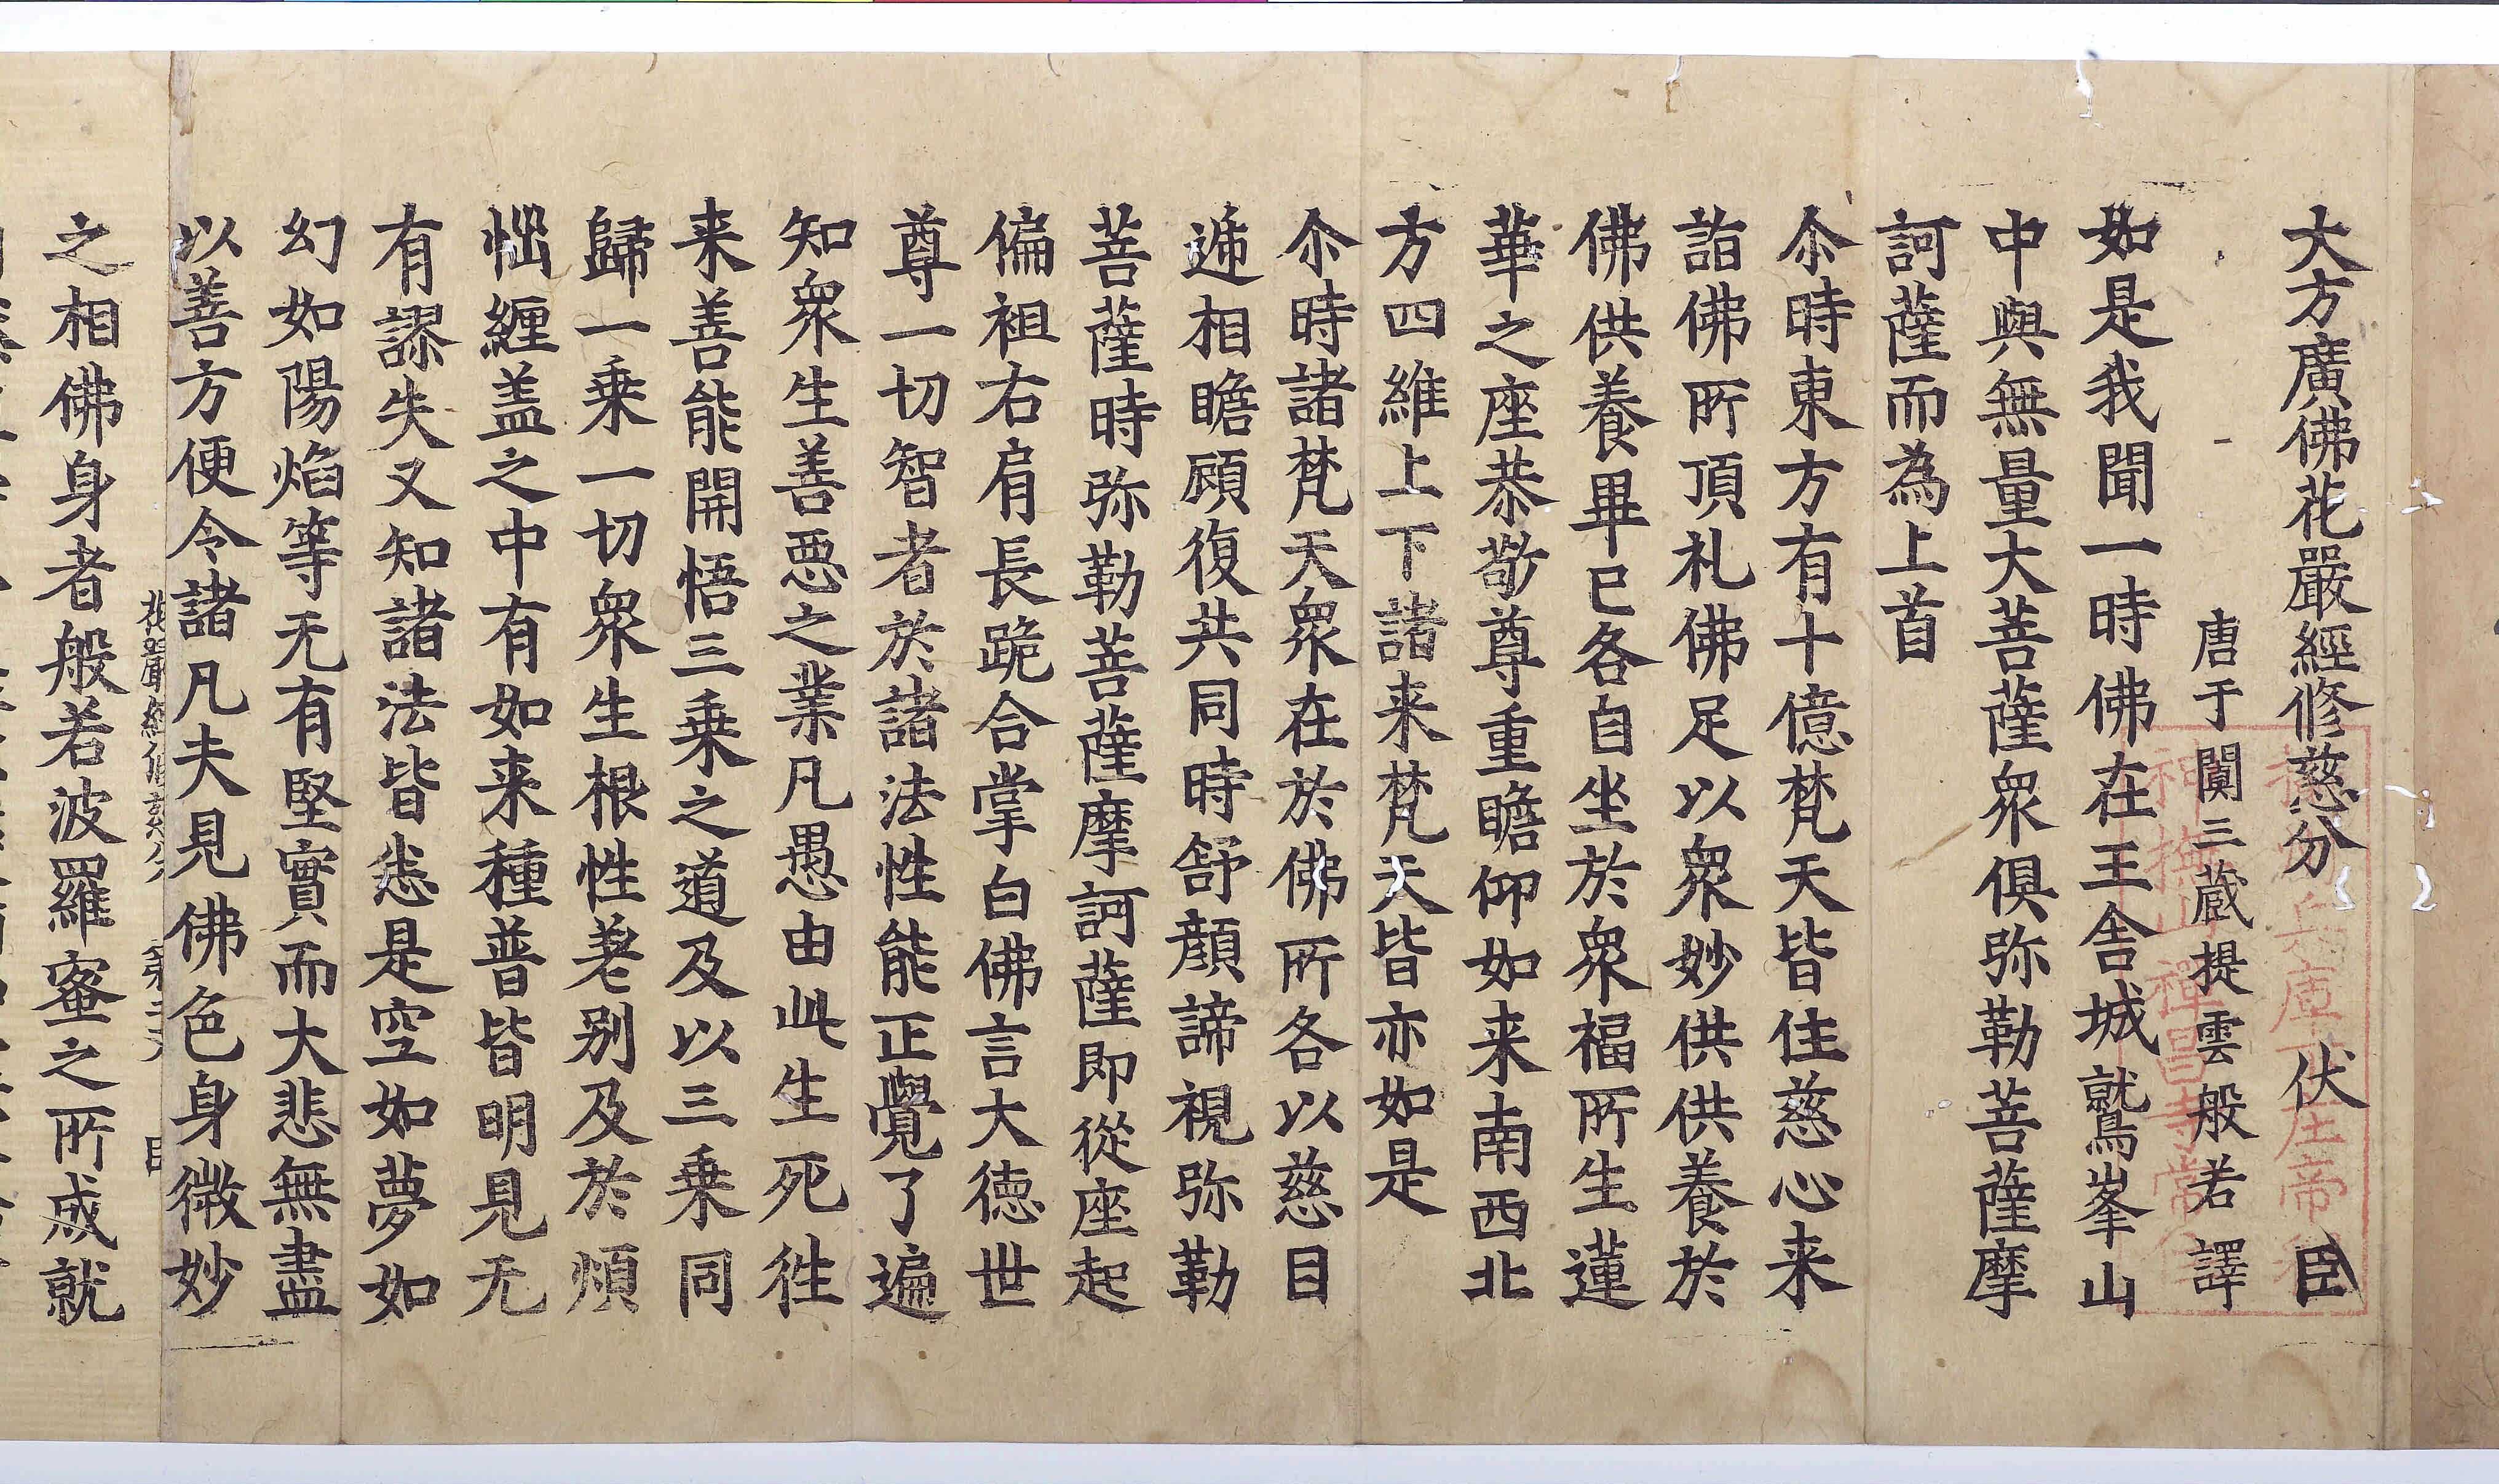 大方廣佛花嚴經修慈分 伏 臣
唐于闐三藏提雲般若譯
如是我聞一時佛在王舍城鷲峯山
中與無量大菩薩眾俱弥勒菩薩摩
訶薩而為上首
尒時東方有十億梵天皆住慈心来
詣佛所頂札佛足以眾妙供供養於
佛供養畢已各自坐於眾福所生蓮
華之座恭敬尊重瞻仰如来南西北
方四維上下諸来梵天皆亦如是
尒時諸梵天眾在於佛所各以慈目
遞相瞻顧復共同時舒顏諦視弥勒
菩薩時弥勒菩薩摩訶薩即從座起
偏袒右肩長跪合掌白佛言大德世
尊一切智者於諸法性能正覺了遍
知眾生善惡之業凡愚由此生死往
来善能開悟三乘之道及以三乘同
歸一乘一切眾生根性差別及於煩
惱纏盖之中有如来種普皆明見无
有謬失又知諸法皆悉是空如夢如
幻如陽焰等无有堅實而大悲無盡
以善方便令諸凡夫見佛色身微妙
花嚴經修慈分 第二
之相佛身者般若波羅蜜之所成就